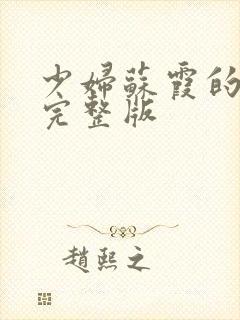 少婦蘇霞的
完整版
趙熙之